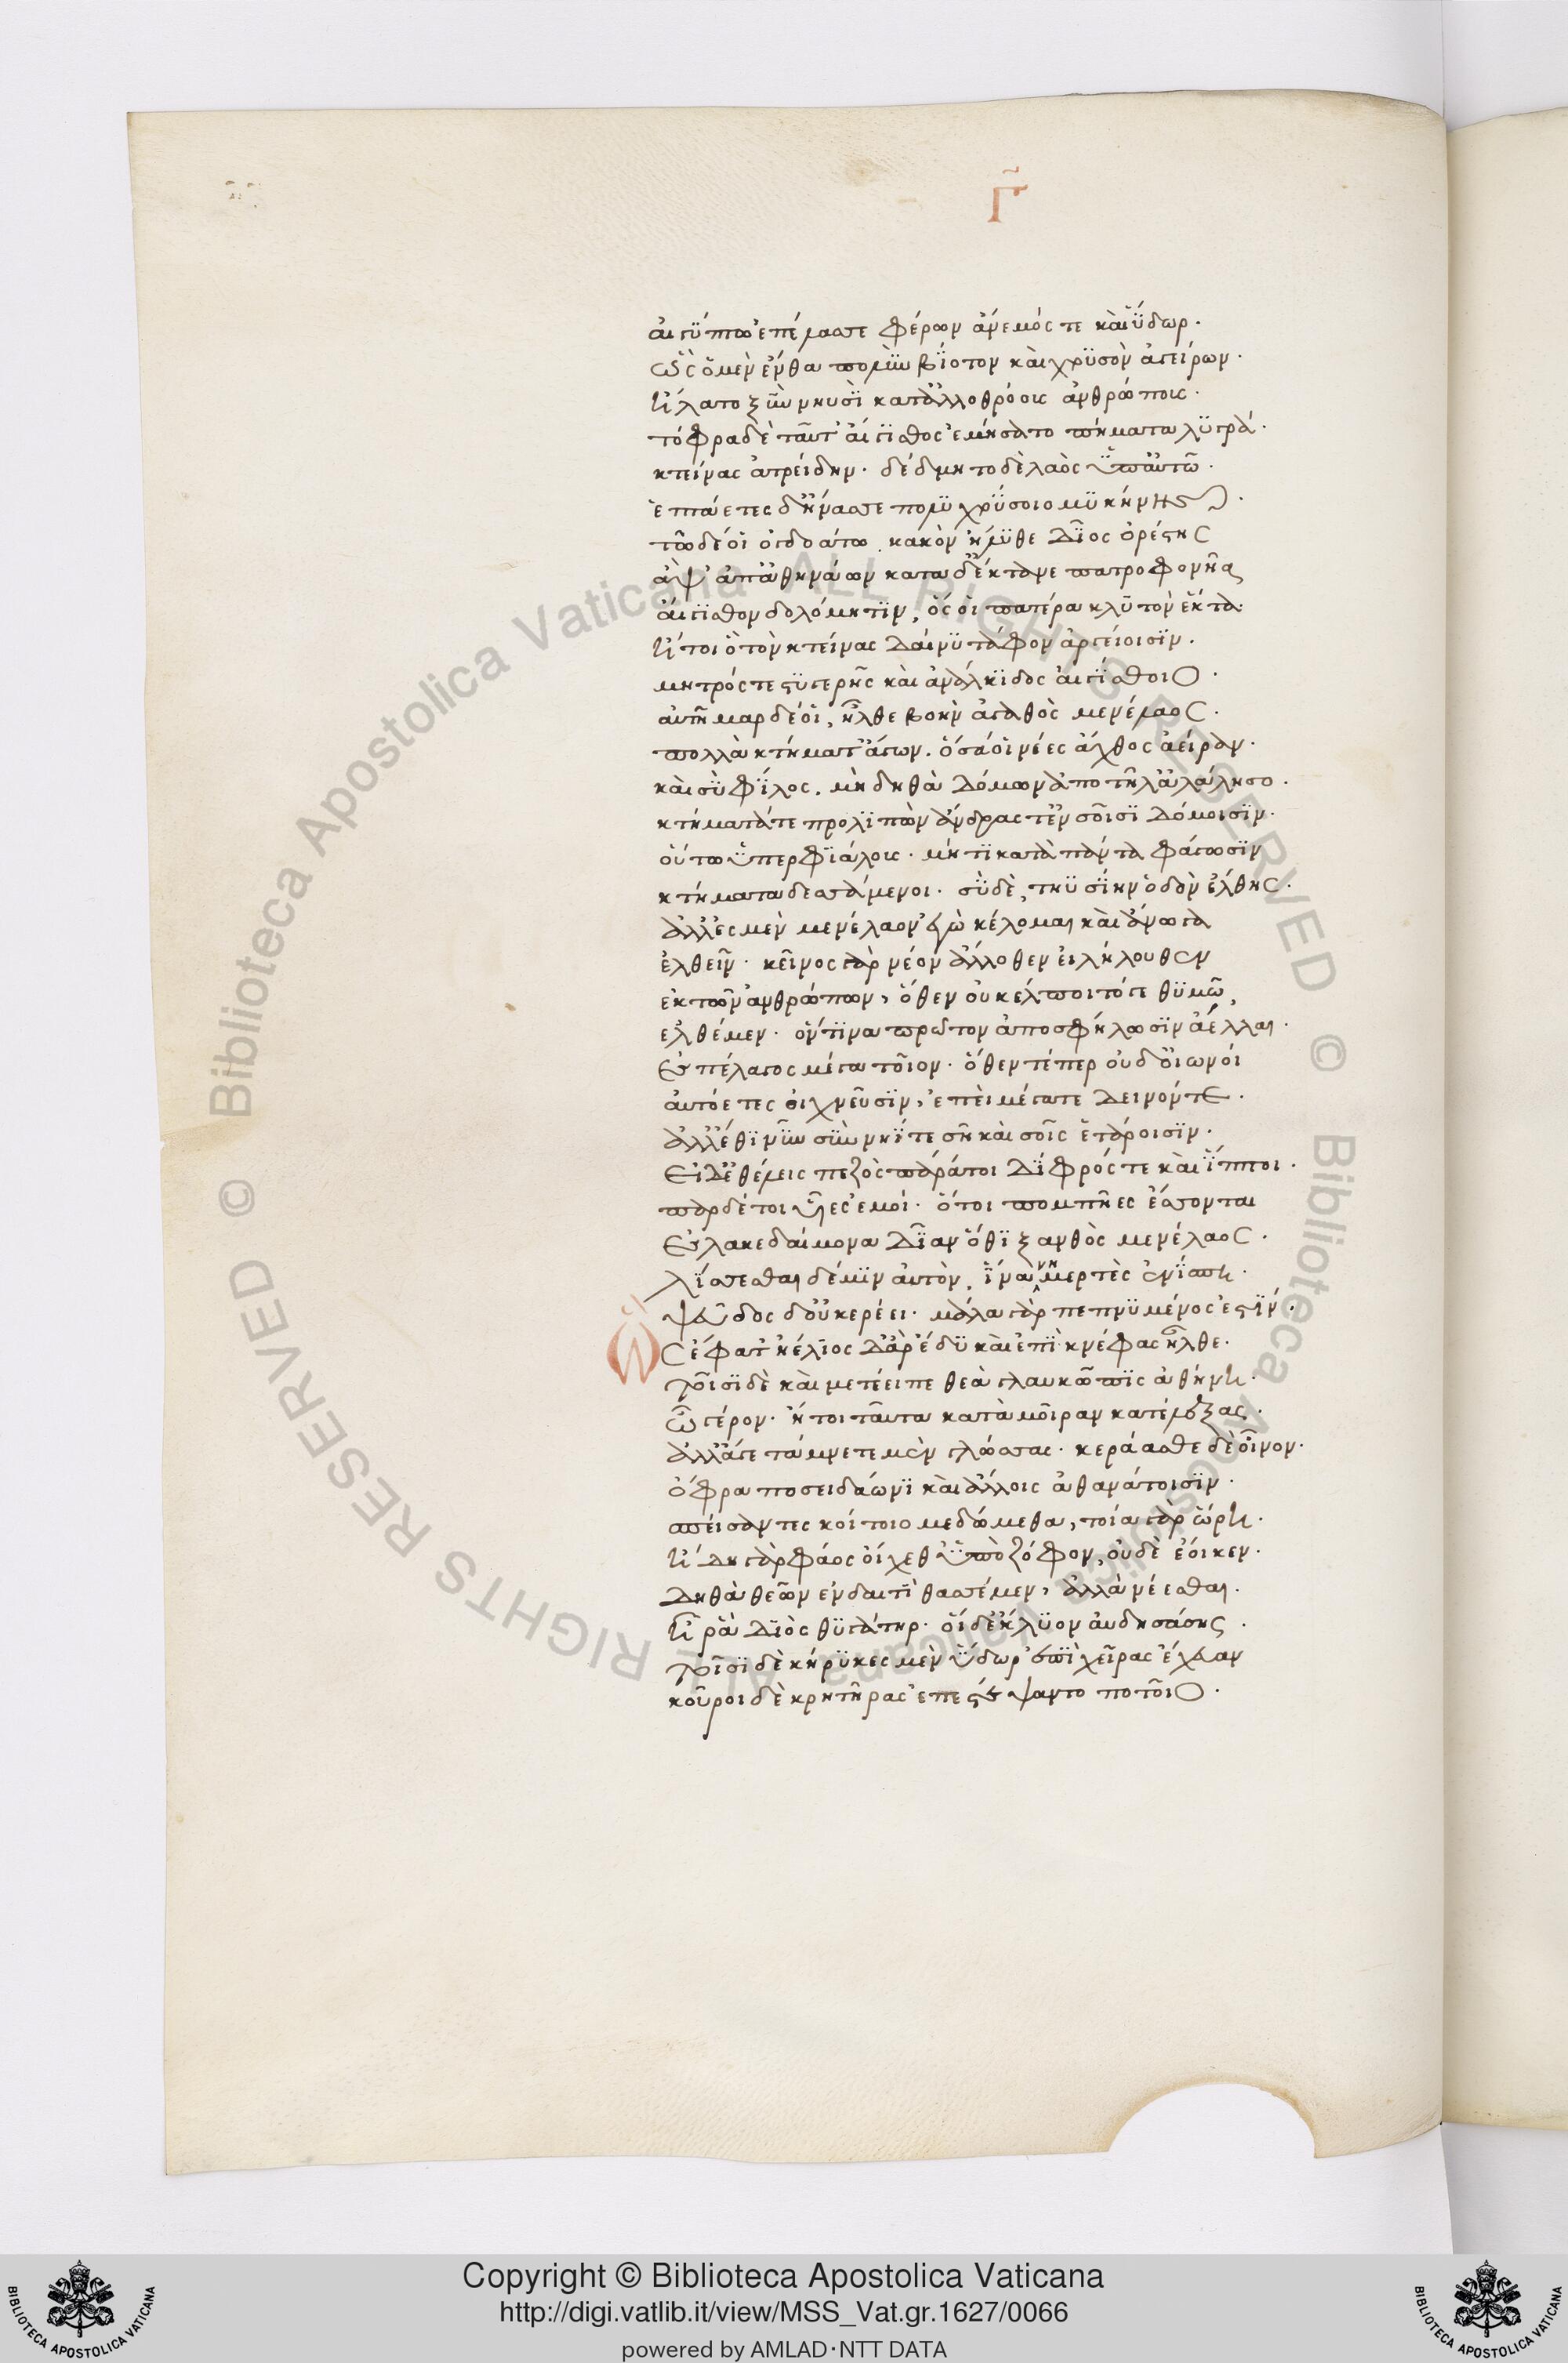 Γ
αἰγύπτω ἐπέλασσε φέρων ἄνεμός τε καὶ ὕδωρ.
ὣς ὃ μὲν ἔνθα πολὺν βίοτον καὶ χρυσὸν ἀγείρων.
ἠλᾶτο ξὺν νηυσὶ κατ' ἀλλοθρόους ἀνθρώπους.
τόφρα δὲ ταῦτ' αἴγισθος ἐμήσατο πήματα λυγρά.
κτείνας ἀτρείδην. δέδμητο δὲ λαὸς ὑπ' αὐτῶ.
ἑπτάετες δ' ἤνασσε πολυχρύσοιο μυκήνης.
τῶ δέ οἱ ὀγδοάτω κακὸν ἤλυθε δῖος ὀρέστης
ἂψ ἀπ' ἀθηνάων κατὰ δ' ἔκτανε πατροφονῆα
αἴγισθον δολόμητιν, ὅς οἱ πατέρα κλυτὸν ἔκτα.
ἤτοι ὃ τὸν κτείνας δαίνυ τάφον ἀργείοισιν.
μητρός τε στυγερῆς καὶ ἀνάλκιδος αἰγίσθοιο.
αὐτῆμαρ δέ οἱ, ἦλθε βοὴν ἀγαθὸς μενέλαος.
πολλὰ κτήματ' ἄγων. ὅσά οἱ νέες ἄχθος ἄειραν.
καὶ σὺ φίλος. μὴ δηθὰ δόμων ἄπο τῆλ' ἀλάλησο.
κτήματά τε προλιπὼν ἄνδρας τ' ἐν σοῖσι δόμοισιν.
οὕτω ὑπερφιάλους. μή τι κατὰ πάντα φάγωσιν
κτήματα δασσάμενοι. σὺ δὲ, τηϋσίην ὁδὸν ἔλθης.
ἀλλ' ἐς μὲν μενέλαον ἐγὼ κέλομαι καὶ ἄνωγα
ἐλθεῖν. κεῖνος γὰρ νέον ἄλλοθεν εἰλήλουθεν
ἐκ τῶν ἀνθρώπων, ὅθεν οὐκ ἔλποιτό γε θυμῶ,
ἐλθέμεν. ὅντινα πρῶτον ἀποσφήλωσιν ἄελλαι.
ἐς πέλαγος μέγα τοῖον. ὅθεν τέ περ οὐδ' οἰωνοί
αὐτόετες οἰχνεῦσιν, ἐπεὶ μέγα τε δεινόν τε.
ἀλλ' ἔθι νῦν σὺν νηΐ τε σῆ καὶ σοῖς ἑτάροισιν.
εἰ δ' ἐθέλεις πεζὸς πάρά τοι δίφρός τε καὶ ἵπποι.
πὰρ δέ τοι υἷες ἐμοί. ὅ τοι πομπῆες ἔσονται
ἐς λακεδαίμονα δῖαν ὅθι ξανθὸς μενέλαος.
λίσσεσθαι δέ μιν αὐτὸν, ἵνα νημερτὲς ἐνίσπη.
ψεῦδος δ' οὐκ ἐρέει. μάλα γὰρ πεπνυμένος ἐστίν.
Ὣς ἔφατ' ἠέλιος δ' ἄρ' ἔδυ καὶ ἐπὶ κνέφας ἦλθε.
τοῖσι δὲ καὶ μετέειπε θεὰ γλαυκῶπις ἀθήνη.
ὦ γέρον. ἤτοι ταῦτα κατὰ μοῖραν κατέλεξας.
ἀλλ' ἄγε τάμνετε μὲν γλώσσας. κεράασθε δὲ οἶνον.
ὄφρα ποσειδάωνι καὶ ἄλλοις ἀθανάτοισιν.
σπείσαντες κοίτοιο μεδώμεθα, τοῖα γὰρ ὥρη.
ἤδη γὰρ φάος οἴχεθ' ὑπὸ ζόφον, οὐδὲ ἔοικεν.
δηθὰ θεῶν ἐν δαιτὶ θαασσέμεν, ἀλλὰ νέεσθαι.
ἦ ῥὰ διὸς θυγάτηρ. οἵ δ' ἔκλυον αὐδησάσης.
τοῖσι δὲ κήρυκες μὲν ὕδωρ ἐπὶ χεῖρας ἔχευαν
κοῦροι δὲ κρητῆρας ἐπεστέψαντο ποτοῖο.
© Biblioteca Apostolica Vaticana ALL RIGHTS RESERVED © Biblioteca Apostolica Vaticana ALL RIGHTS RESERVED
BIBLIOTECA APOSTOLICA VATICANA
Copyright © Biblioteca Apostolica Vaticana
http://digi.vatlib.it/view/MSS_Vat.gr.1627/0066
powered by AMLAD·NTT DATA
BIBLIOTECA APOSTOLICA VATICANA